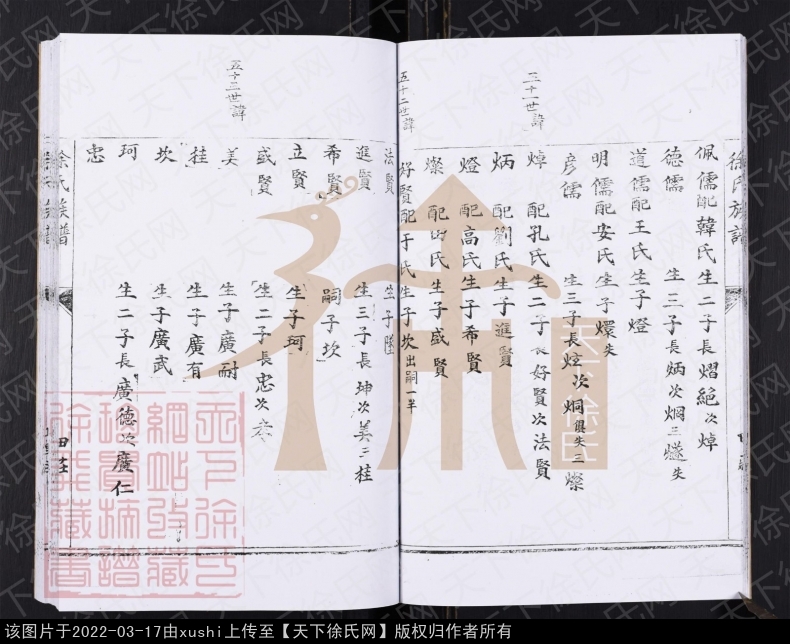 徐氏族譜
佩儒配韓氏生二子長熠絕次焯
德儒 生三子長炳次烱三燧失
道儒配王氏生子燈
明儒配安氏生子燝失
彦儒 生三子長炫次烔俱失三燦
五十一世諱
焯 配孔氏生二子長好賢次法賢
炳 配劉氏生子進賢
燈 配高氏生子希賢
燦 配田氏生子盛賢
五十二世諱
好賢配于氏生子坎出嗣一半
法賢 生子
進賢 生三子長坤次美三桂
希賢 嗣子坎
立賢 生子珂
盛賢 生二子長忠次
五十三世諱
美 生子廣耐
桂 生子廣有
坎 生子廣武
珂 生二子長廣德次廣仁
忠
徐氏族譜
田庄
天下徐氏
天下徐氏网
该图片于2022-03-17由xushi上传至【天下徐氏网】版权归作者所有